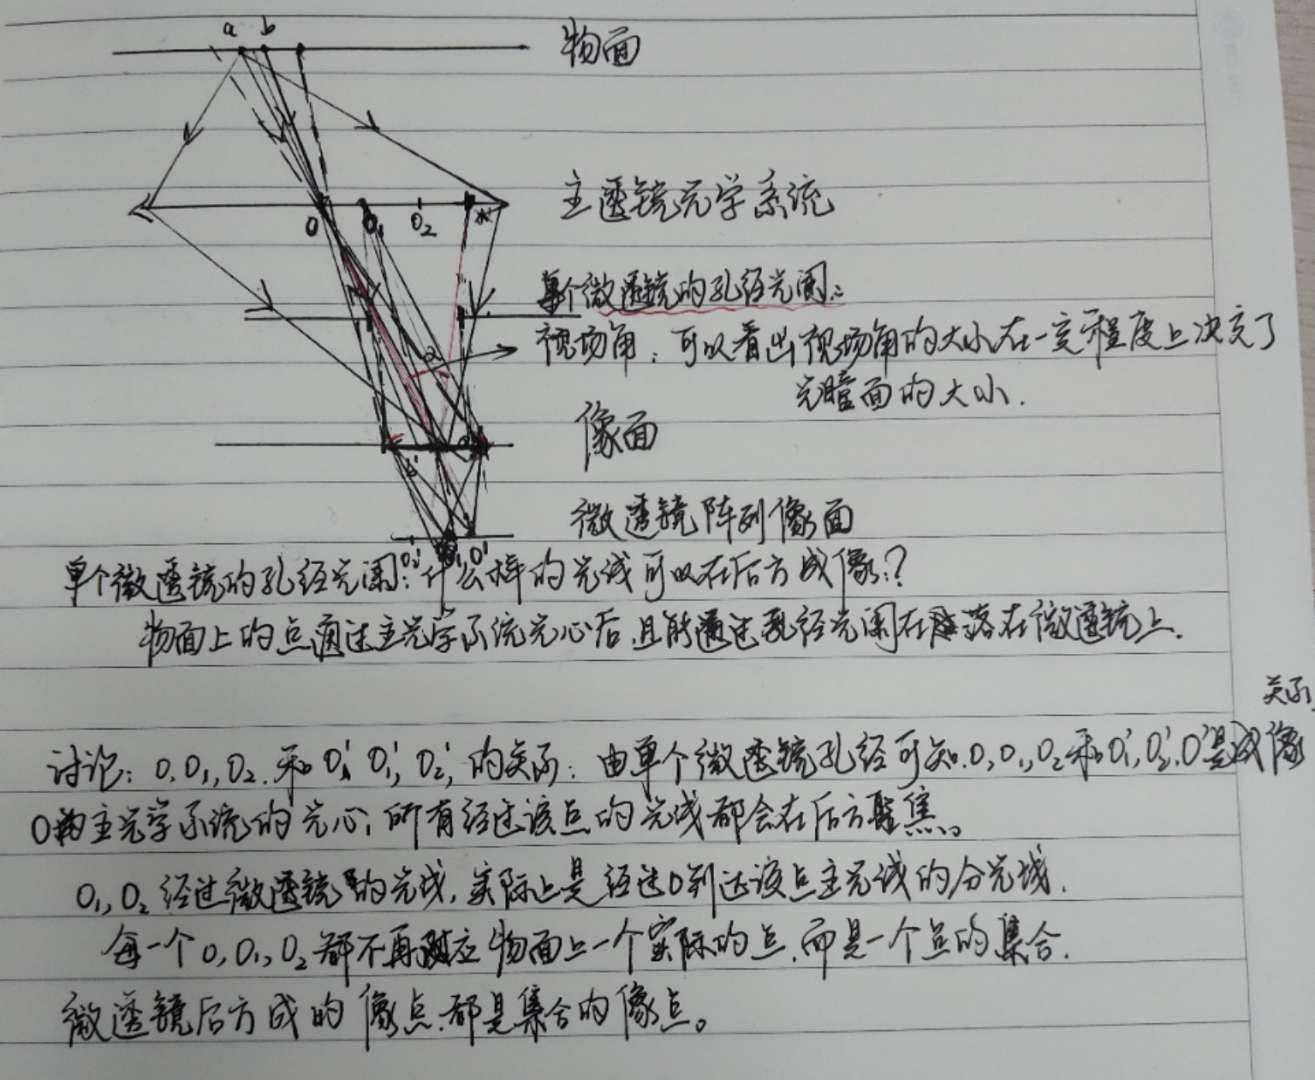 a b
物面
主透镜光学系统
O O₁ O₂
单个微透镜的孔径光阑:
视场角:可以看出视场角的大小在一定程度上决定了
光瞳面的大小.
像面
微透镜阵列像面
O₂' O₁' O'
单个微透镜的孔径光阑:什么样的光线可以在后方成像?
物面上的点通过主光学系统光心后,且能通过孔径光阑在落在微透镜上.
关系
讨论: O,O₁,O₂.和 O' O₁', O₂', 的关系: 由单个微透镜孔径可知.O,O₁,O₂和O₁',O₂'.O'是成像
O为主光学系统的光心,所有经过该点的光线都会在后方聚焦。
O₁,O₂经过微透镜的光线,实际上是经过O到达该点主光线的分光线.
每一个O,O₁,O₂都不再对应物面上一个实际的点.而是一个点的集合.
微透镜后方成的像点.都是集合的像点。